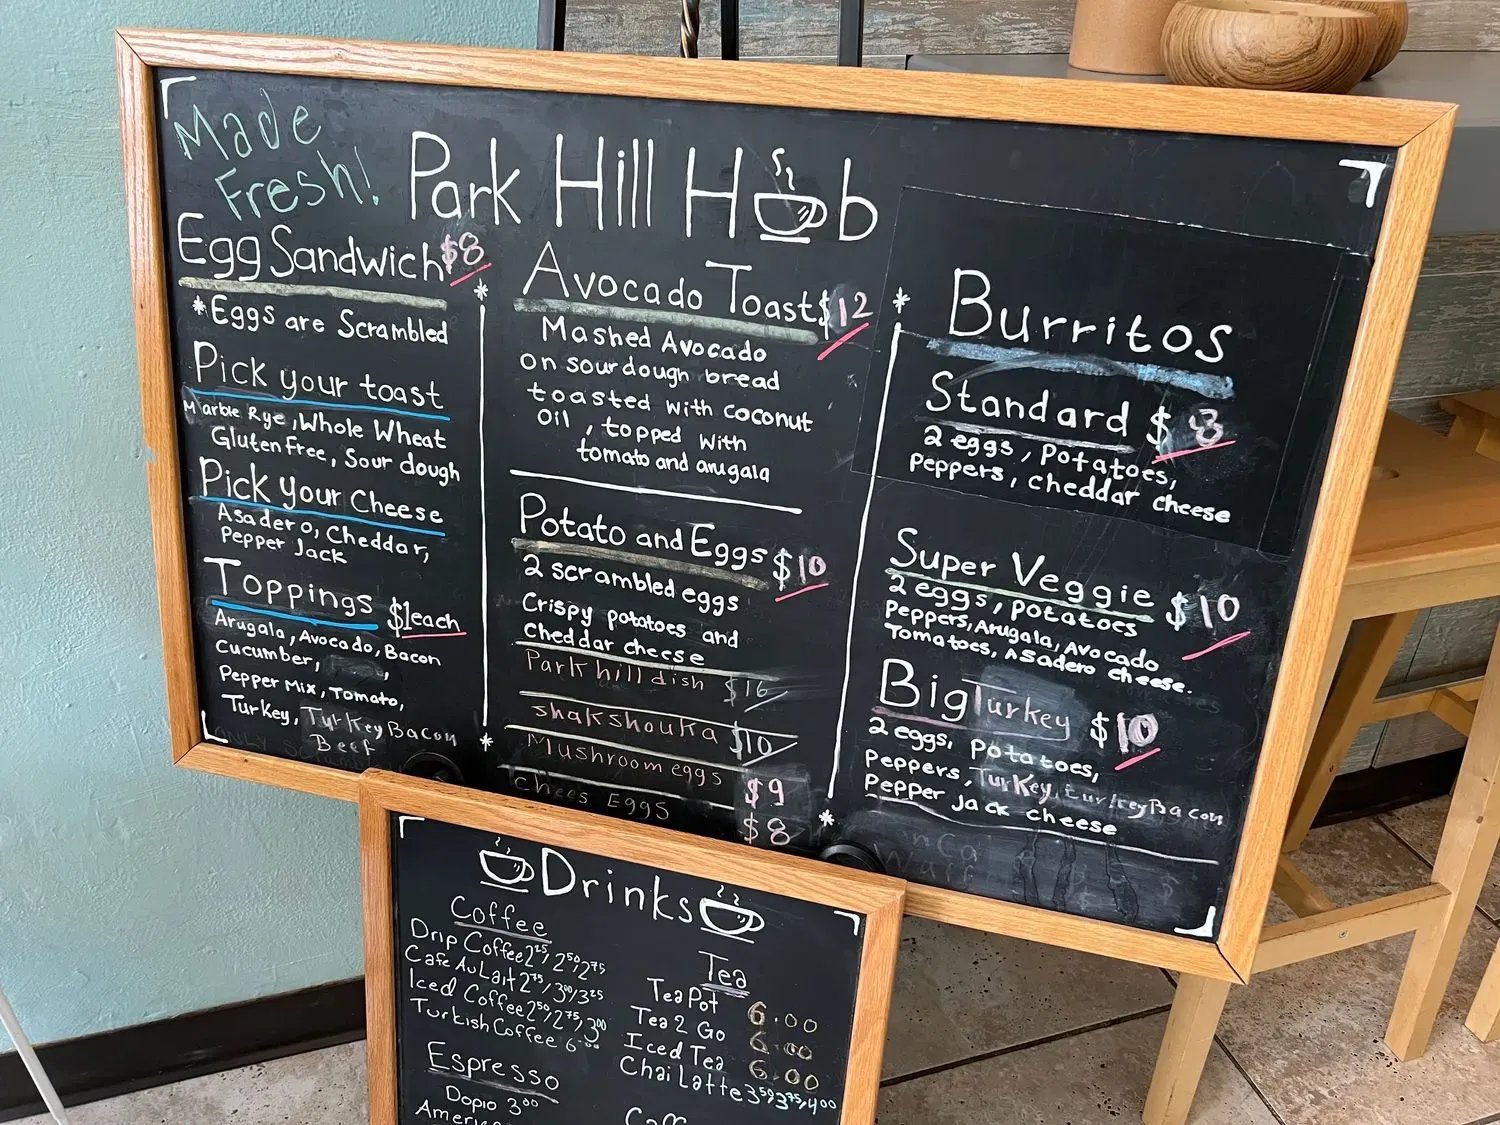 Made
Fresh!
Park Hill Hub
Egg Sandwich $8
*Eggs are Scrambled
Pick your toast
Marble Rye, Whole Wheat
Gluten free, Sour dough
Pick your Cheese
Asadero, Cheddar,
Pepper Jack
Toppings $1 each
Arugala, Avocado, Bacon
Cucumber, ,
Pepper Mix, Tomato,
Turkey, Turkey Bacon
Beef
Avocado Toast $12
Mashed Avocado
on sourdough bread
toasted with coconut
oil, topped with
tomato and arugala
Potato and Eggs $10
2 scrambled eggs
Crispy potatoes and
cheddar cheese
Park hill dish $16
shakshouka $10
Mushroom eggs $9
chees EGGS $8
Burritos
Standard $8
2 eggs, potatoes,
peppers, cheddar cheese
Super Veggie $10
2 eggs, potatoes
Peppers, Arugala, Avocado
Tomatoes, Asadero cheese.
Big Turkey $10
2 eggs, potatoes,
peppers, Turkey, turkey Bacon
Pepper Jack cheese
Drinks
Coffee
Drip Coffee 2²⁵, 2⁵⁰, 2⁷⁵
Cafe Au Lait 2⁷⁵, 3⁰⁰, 3²⁵
Iced Coffee 2⁵⁰, 2⁷⁵, 3⁰⁰
Turkish Coffee 6.⁰⁰
Espresso
Dopio 3⁰⁰
Tea
Tea Pot 6.00
Tea 2 Go 6.00
Iced Tea 6.00
Chai Latte 3⁵⁰, 3⁷⁵, 4⁰⁰